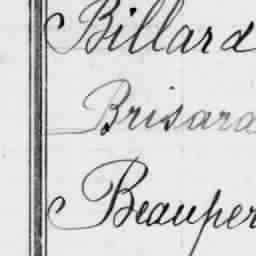 Billard
Brisard
Beauper